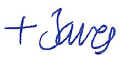 + Janes